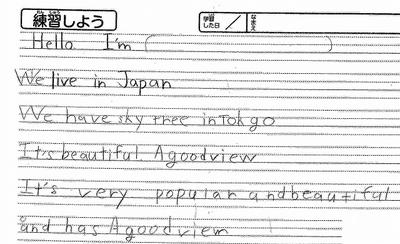 練習しよう 学習した日 / なまえ
Hello I'm ( )
We live in Japan
We have sky tree in Tokgo
It's beautiful. A goodview
It's very popular andbeautiful
and has A good viem